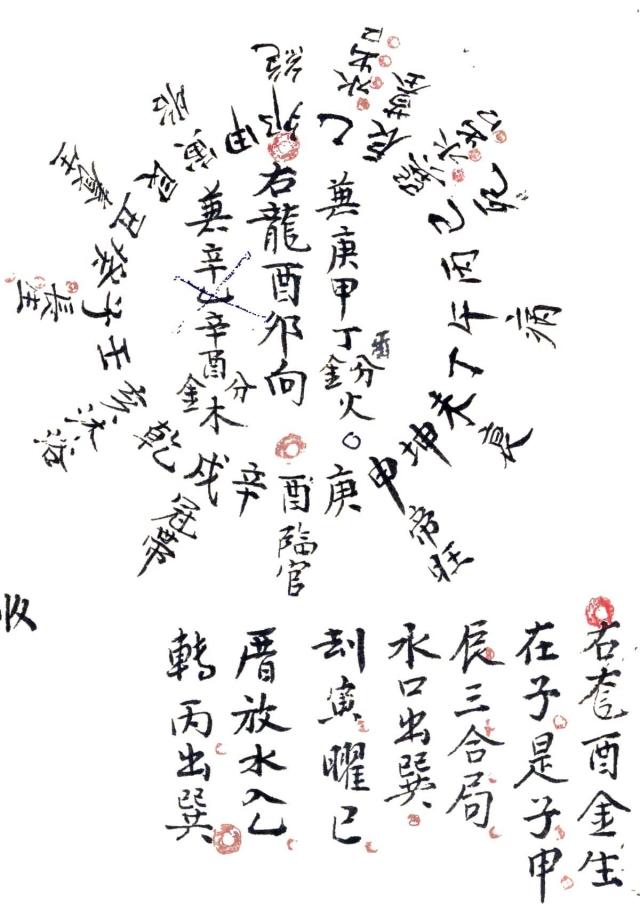 絕
水出口
辰墓
水出口
巽
死
胎
寅
甲
卯
乙
巳
艮
丑
癸
子
壬
亥
乾
戌
辛
酉
庚
申
坤
未
丁
午
丙
長生
沐浴
冠帶
臨官
帝旺
衰
病
兼庚甲丁酉分金火
右龍酉卯向
兼辛乙辛酉分金木
右龍酉金生
在子是子申
辰三合局
水口出巽
刦寅曜巳
厝放水入乙
轉丙出巽